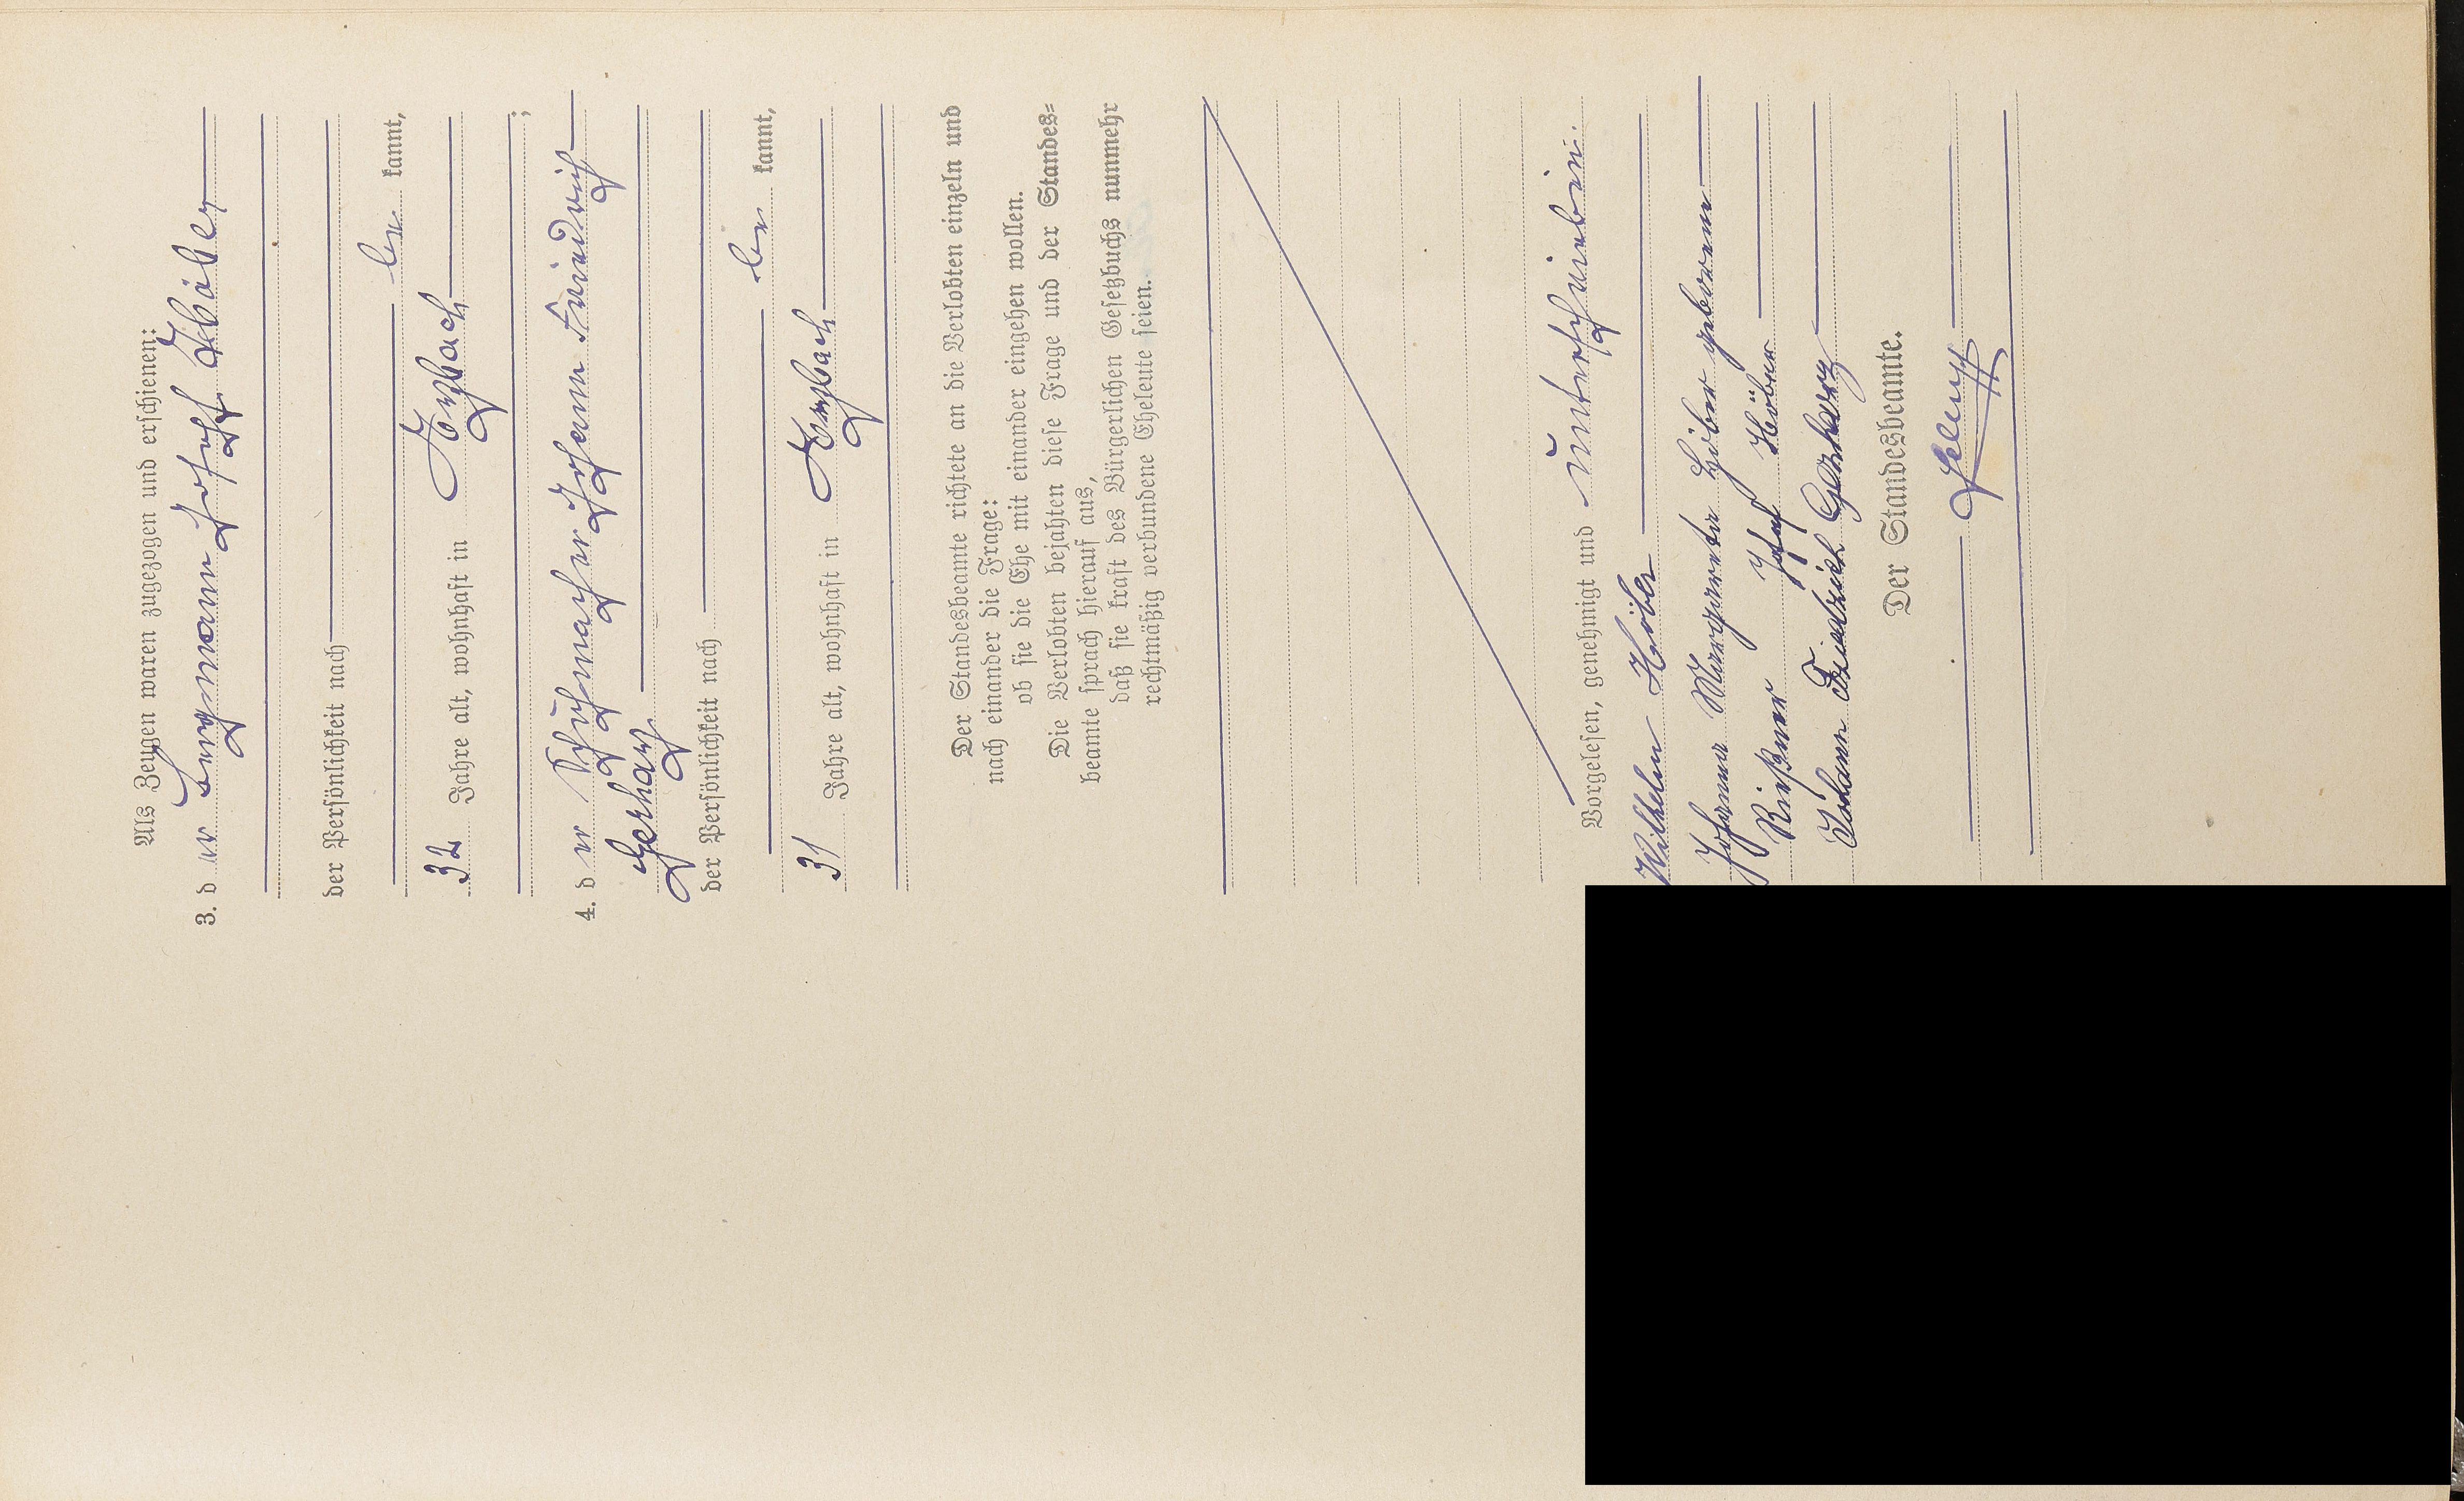 Als Zeugen waren zugezogen und erschienen:
3. der Bergmann Josef Höber
der Persönlichkeit nach
be kannt,
32 Jahre alt, wohnhaft in Erzbach
;
4. der Schuhmacher Johann Friedrich
Gerharz
der Persönlichkeit nach
be kannt,
31 Jahre alt, wohnhaft in Erzbach
Der Standesbeamte richtete an die Verlobten einzeln und
nach einander die Frage:
ob sie die Ehe mit einander eingehen wollen.
Die Verlobten bejahten diese Frage und der Standes=
beamte sprach hierauf aus,
daß sie kraft des Bürgerlichen Gesetzbuchs nunmehr
rechtmäßig verbundene Eheleute seien.
Vorgelesen, genehmigt und unterschrieben.
Wilhelm Höber
Johanna Margareta Höber geborene
Rießner Josef Höber
Johann Friedrich Gerharz
Der Standesbeamte.